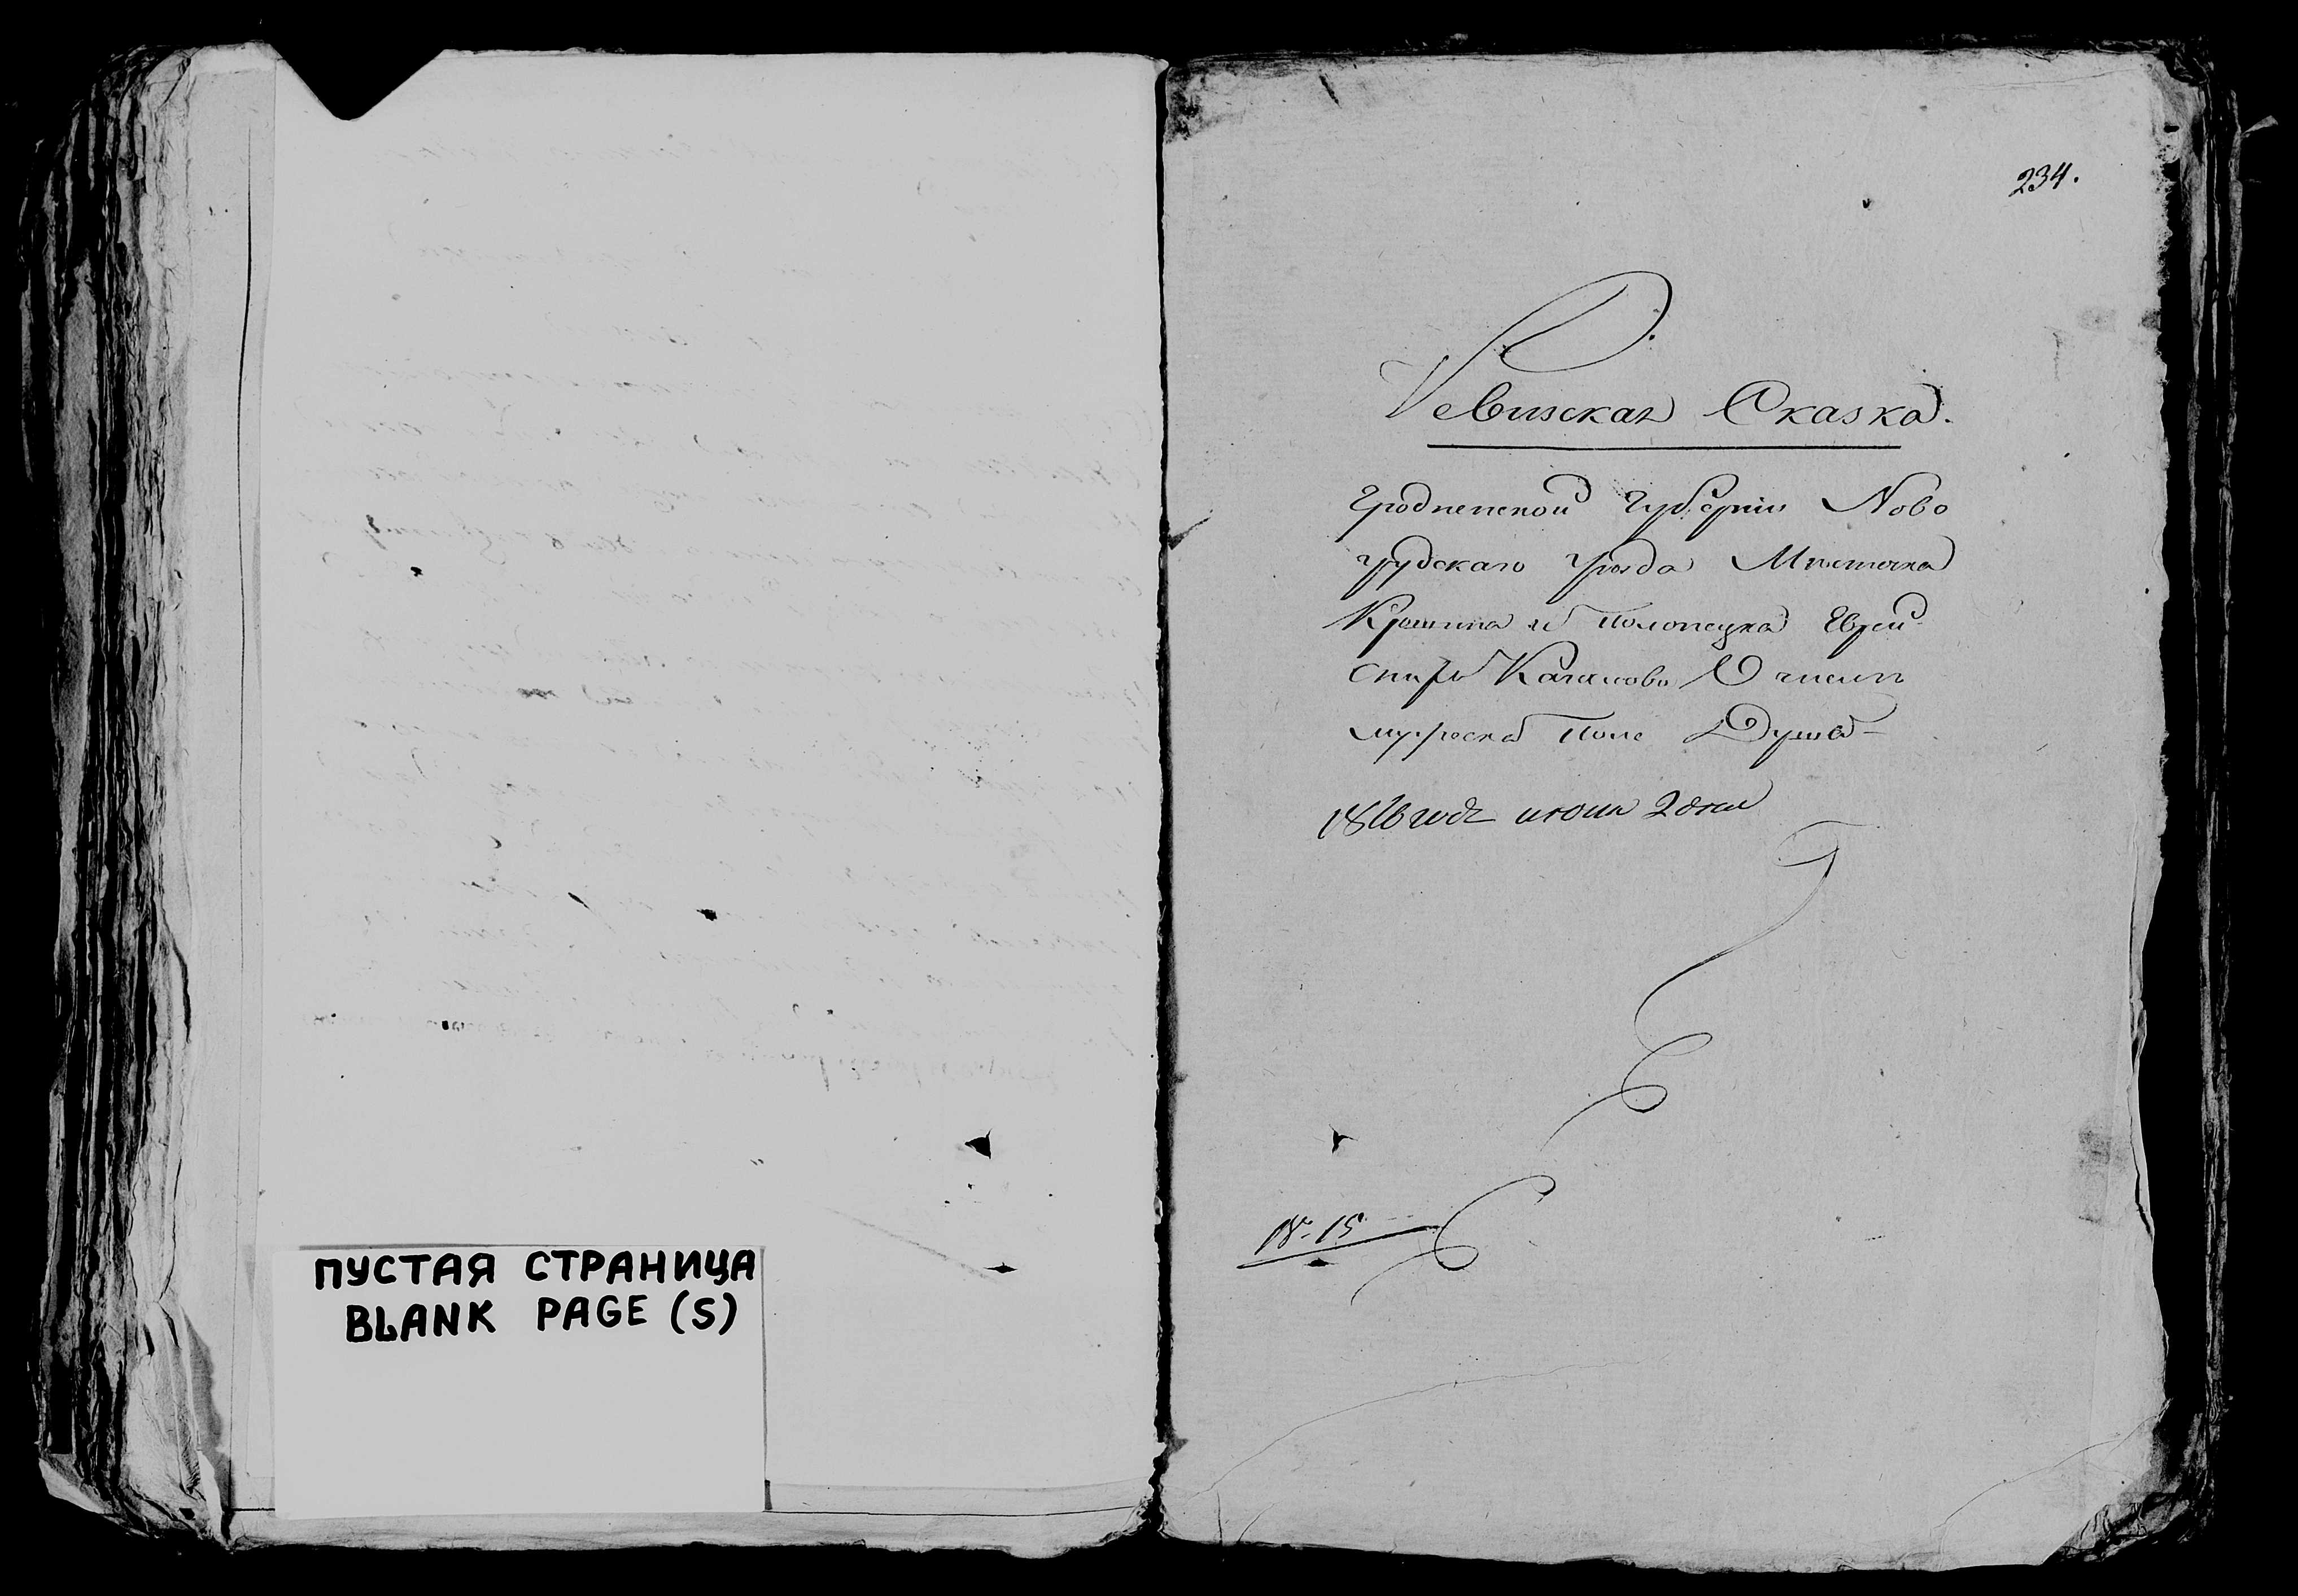 ПУСТАЯ СТРАНИЦА
BLANK PAGE (S)
234.
Ревизская Сказка.
Гродненской Губернiи Ново
грудскаго уѣзда Мѣстечка
Крошина и Полонецка Еврей
Кагалово О числѣ
мужеска Поле Душъ
1816 года июня 2 дня
18-15